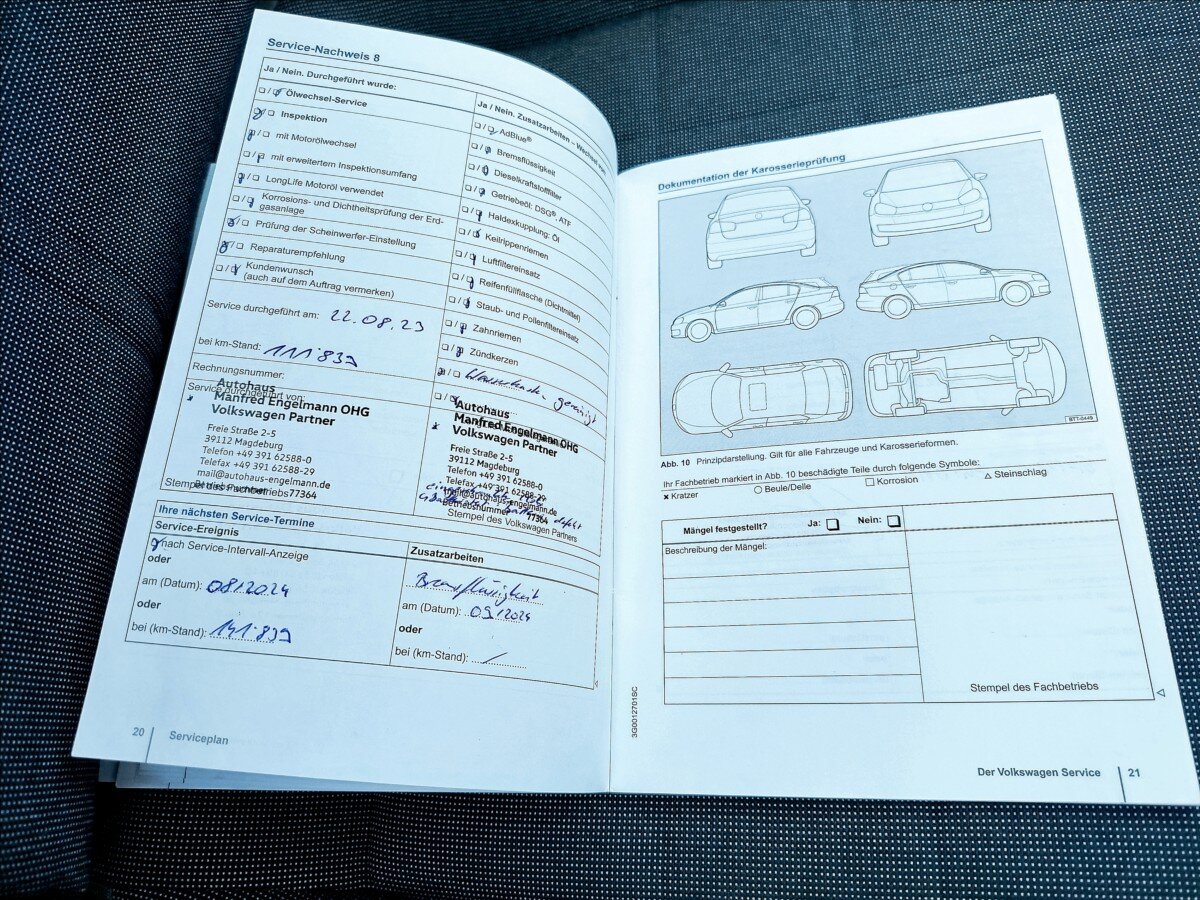 Service-Nachweis 8
Ja / Nein. Durchgeführt wurde:
Ölwechsel-Service
Inspektion
mit Motorölwechsel
mit erweitertem Inspektionsumfang
LongLife Motoröl verwendet
Korrosions- und Dichtheitsprüfung der Erd-
gasanlage
Prüfung der Scheinwerfer-Einstellung
Reparaturempfehlung
Kundenwunsch
(auch auf dem Auftrag vermerken)
Service durchgeführt am: 22.08.23
bei km-Stand: 111'839
Rechnungsnummer:
Service durchgeführt von:
Autohaus
Manfred Engelmann OHG
Volkswagen Partner
Freie Straße 2-5
39112 Magdeburg
Telefon +49 391 62588-0
Telefax +49 391 62588-29
mail@autohaus-engelmann.de
Betriebsnummer 77364
Stempel des Fachbetriebs
Ja / Nein. Zusatzarbeiten – Wechsel
AdBlue®
Bremsflüssigkeit
Dieselkraftstofffilter
Getriebeöl: DSG®, ATF
Haldexkupplung: Öl
Keilrippenriemen
Luftfiltereinsatz
Reifenfüllflasche (Dichtmittel)
Staub- und Pollenfiltereinsatz
Zahnriemen
Zündkerzen
Wasserkasten gereinigt
Autohaus
Manfred Engelmann OHG
Volkswagen Partner
Freie Straße 2-5
39112 Magdeburg
Telefon +49 391 62588-0
Telefax +49 391 62588-29
mail@autohaus-engelmann.de
Betriebsnummer 77364
Stempel des Volkswagen Partners
Ihre nächsten Service-Termine
Service-Ereignis
nach Service-Intervall-Anzeige
oder
am (Datum): 08/2024
oder
bei (km-Stand): 141'839
Zusatzarbeiten
Bremsflüssigkeit
am (Datum): 09/2024
oder
bei (km-Stand): /
20 Serviceplan
Dokumentation der Karosserieprüfung
BTT-0449
Abb. 10 Prinzipdarstellung. Gilt für alle Fahrzeuge und Karosserieformen.
Ihr Fachbetrieb markiert in Abb. 10 beschädigte Teile durch folgende Symbole:
× Kratzer ○ Beule/Delle □ Korrosion △ Steinschlag
Mängel festgestellt? Ja: □ Nein: □
Beschreibung der Mängel:
Stempel des Fachbetriebs
3G0012701SC
Der Volkswagen Service 21